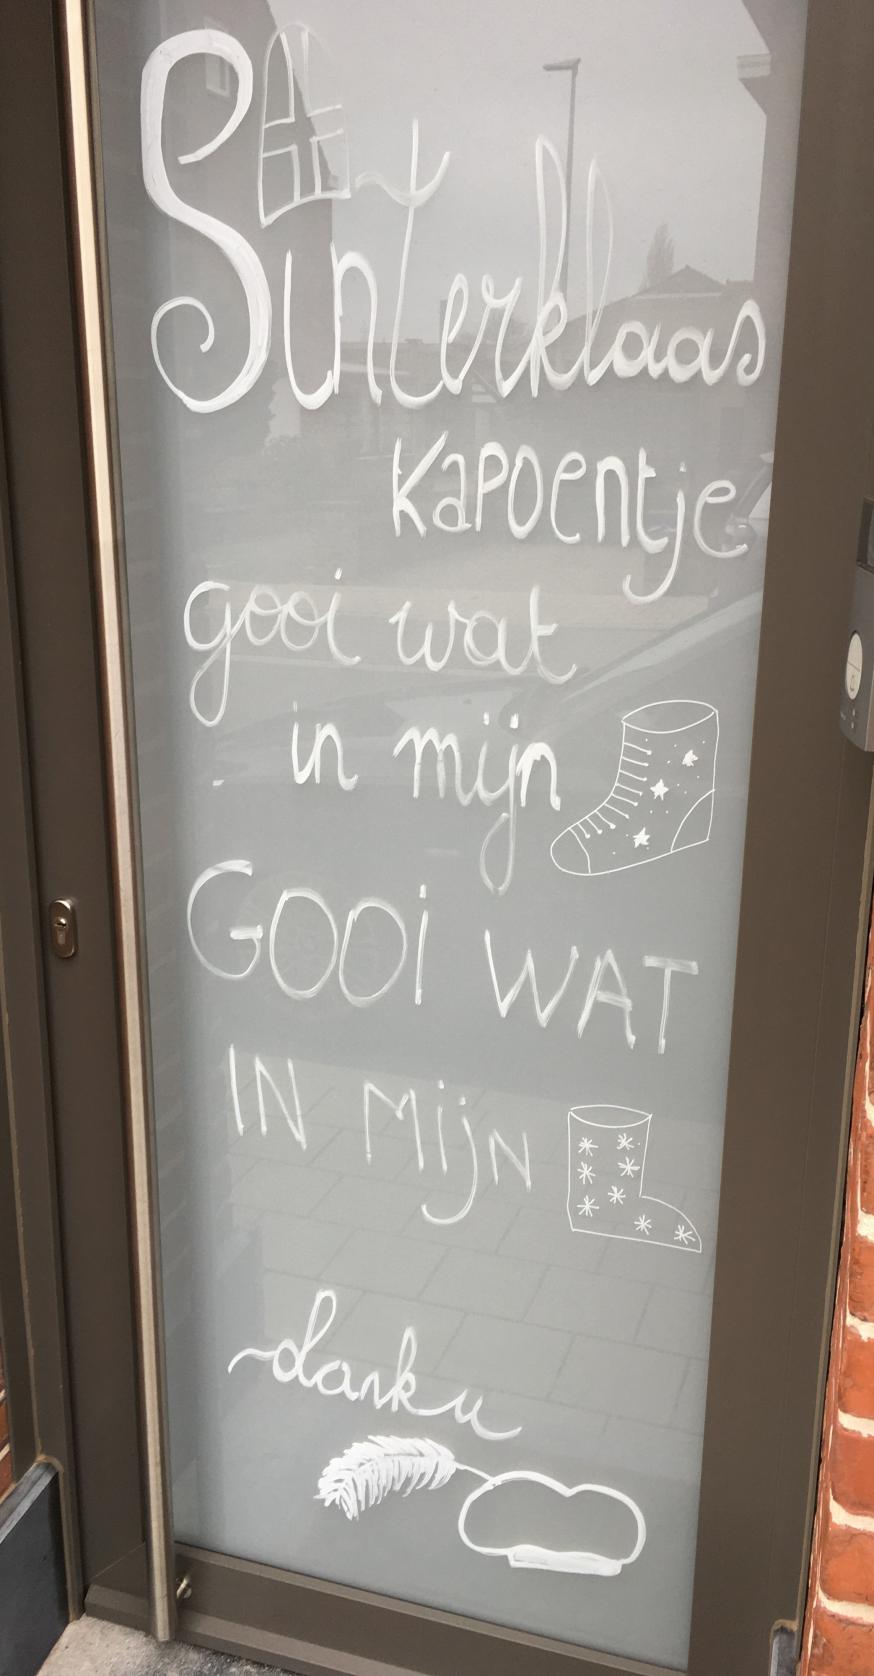 Sinterklaas
Kapoentje
gooi wat
in mijn
GOOi WAT
IN Mijn
dank u